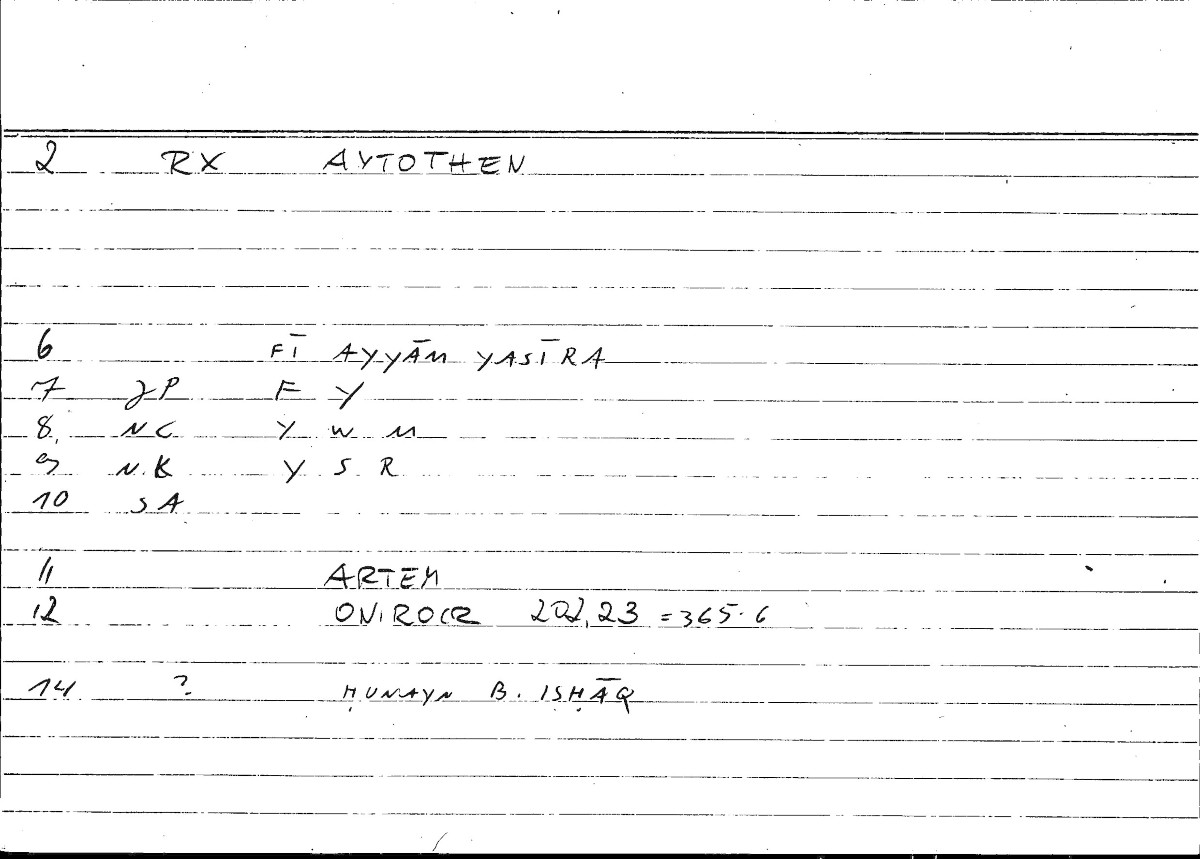 2 RX AYTOTHEN
6 FĪ AYYĀM YASĪRA
7 JP F Y
8. NC Y W M
9 N.K Y S R
10 SA
11 ARTEM
12 ONIROCR 202,23 = 365.6
14 ? ḤUNAYN B. ISḤĀQ